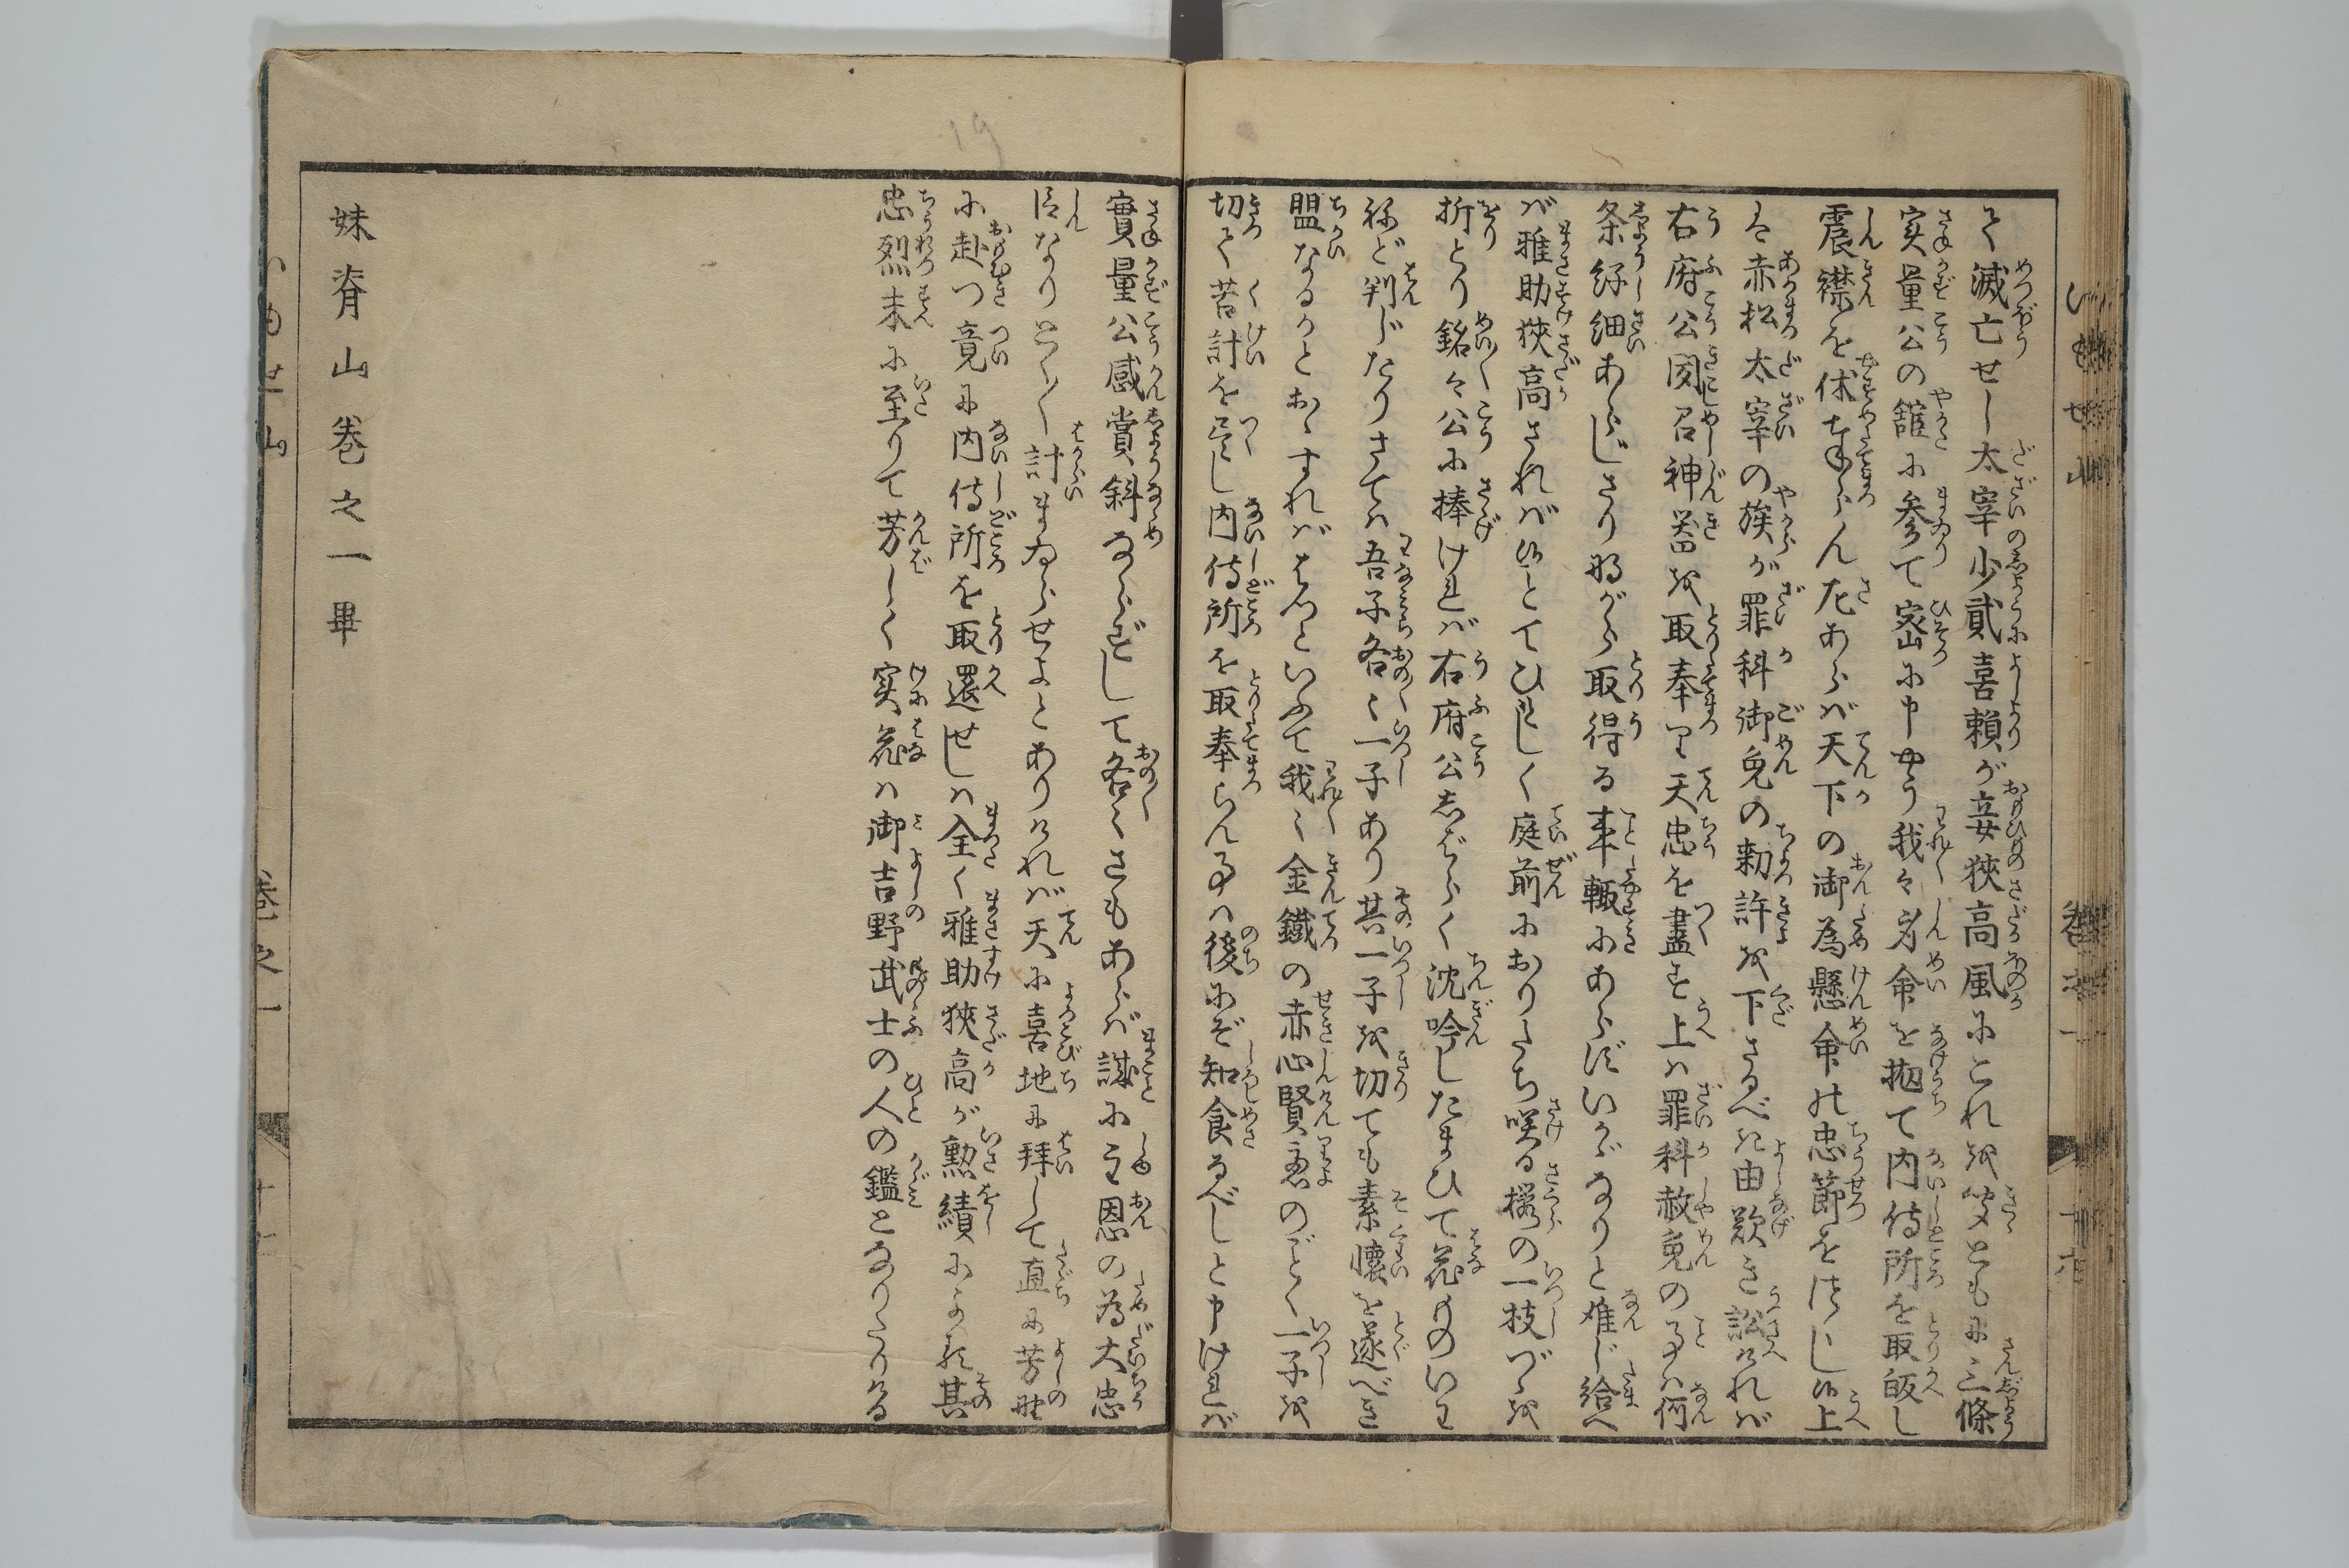 て滅亡せし太宰少貳喜頼が妾狭高風にこれを聞とも に三條
実量公の舘に参て密に申やう我々身命を抛て内侍所を取皈し
震襟を休奉らん左あらば天下の御為懸命の忠節をはげし候上
は赤松太宰の族が罪科御免の勅許を下さるべき由歎き訟ければ
右府公聞召神器を取奉り天忠を盡す上は罪科赦免の事は何
条仔細あらじさり乍がら取得る事輙にあらずいかゞなりと难じ給へ
ば雅助狭高されば候とてひとしく庭前におりたち咲る桜の一枝づゝを
折とり銘々公に捧ければ右府公しばらく沈吟したまひて花ものいは
ねど判じたりさては吾子各〻一子あり其一子を切ても素懐を遂べき
盟なるかとおゝすればはつといふて我〻金鐵の赤心賢慮のごとく一子を
切て苦計を尽し内侍所を取奉らん事は後にぞ知食るべしと申ければ
實量公感賞斜ならずして各〻さもあらば誠に主恩の為大忠
臣なりとく〳〵計まゐらせよとありければ天に喜地に拝して直に芳野
に赴つ竟に内侍所を取還せしは全く雅助狭高が勲績による其
忠烈末に至りて芳しく実花は御吉野武士の人の鑑となりたりける
妹脊山巻之一畢
いもせ山
巻之一